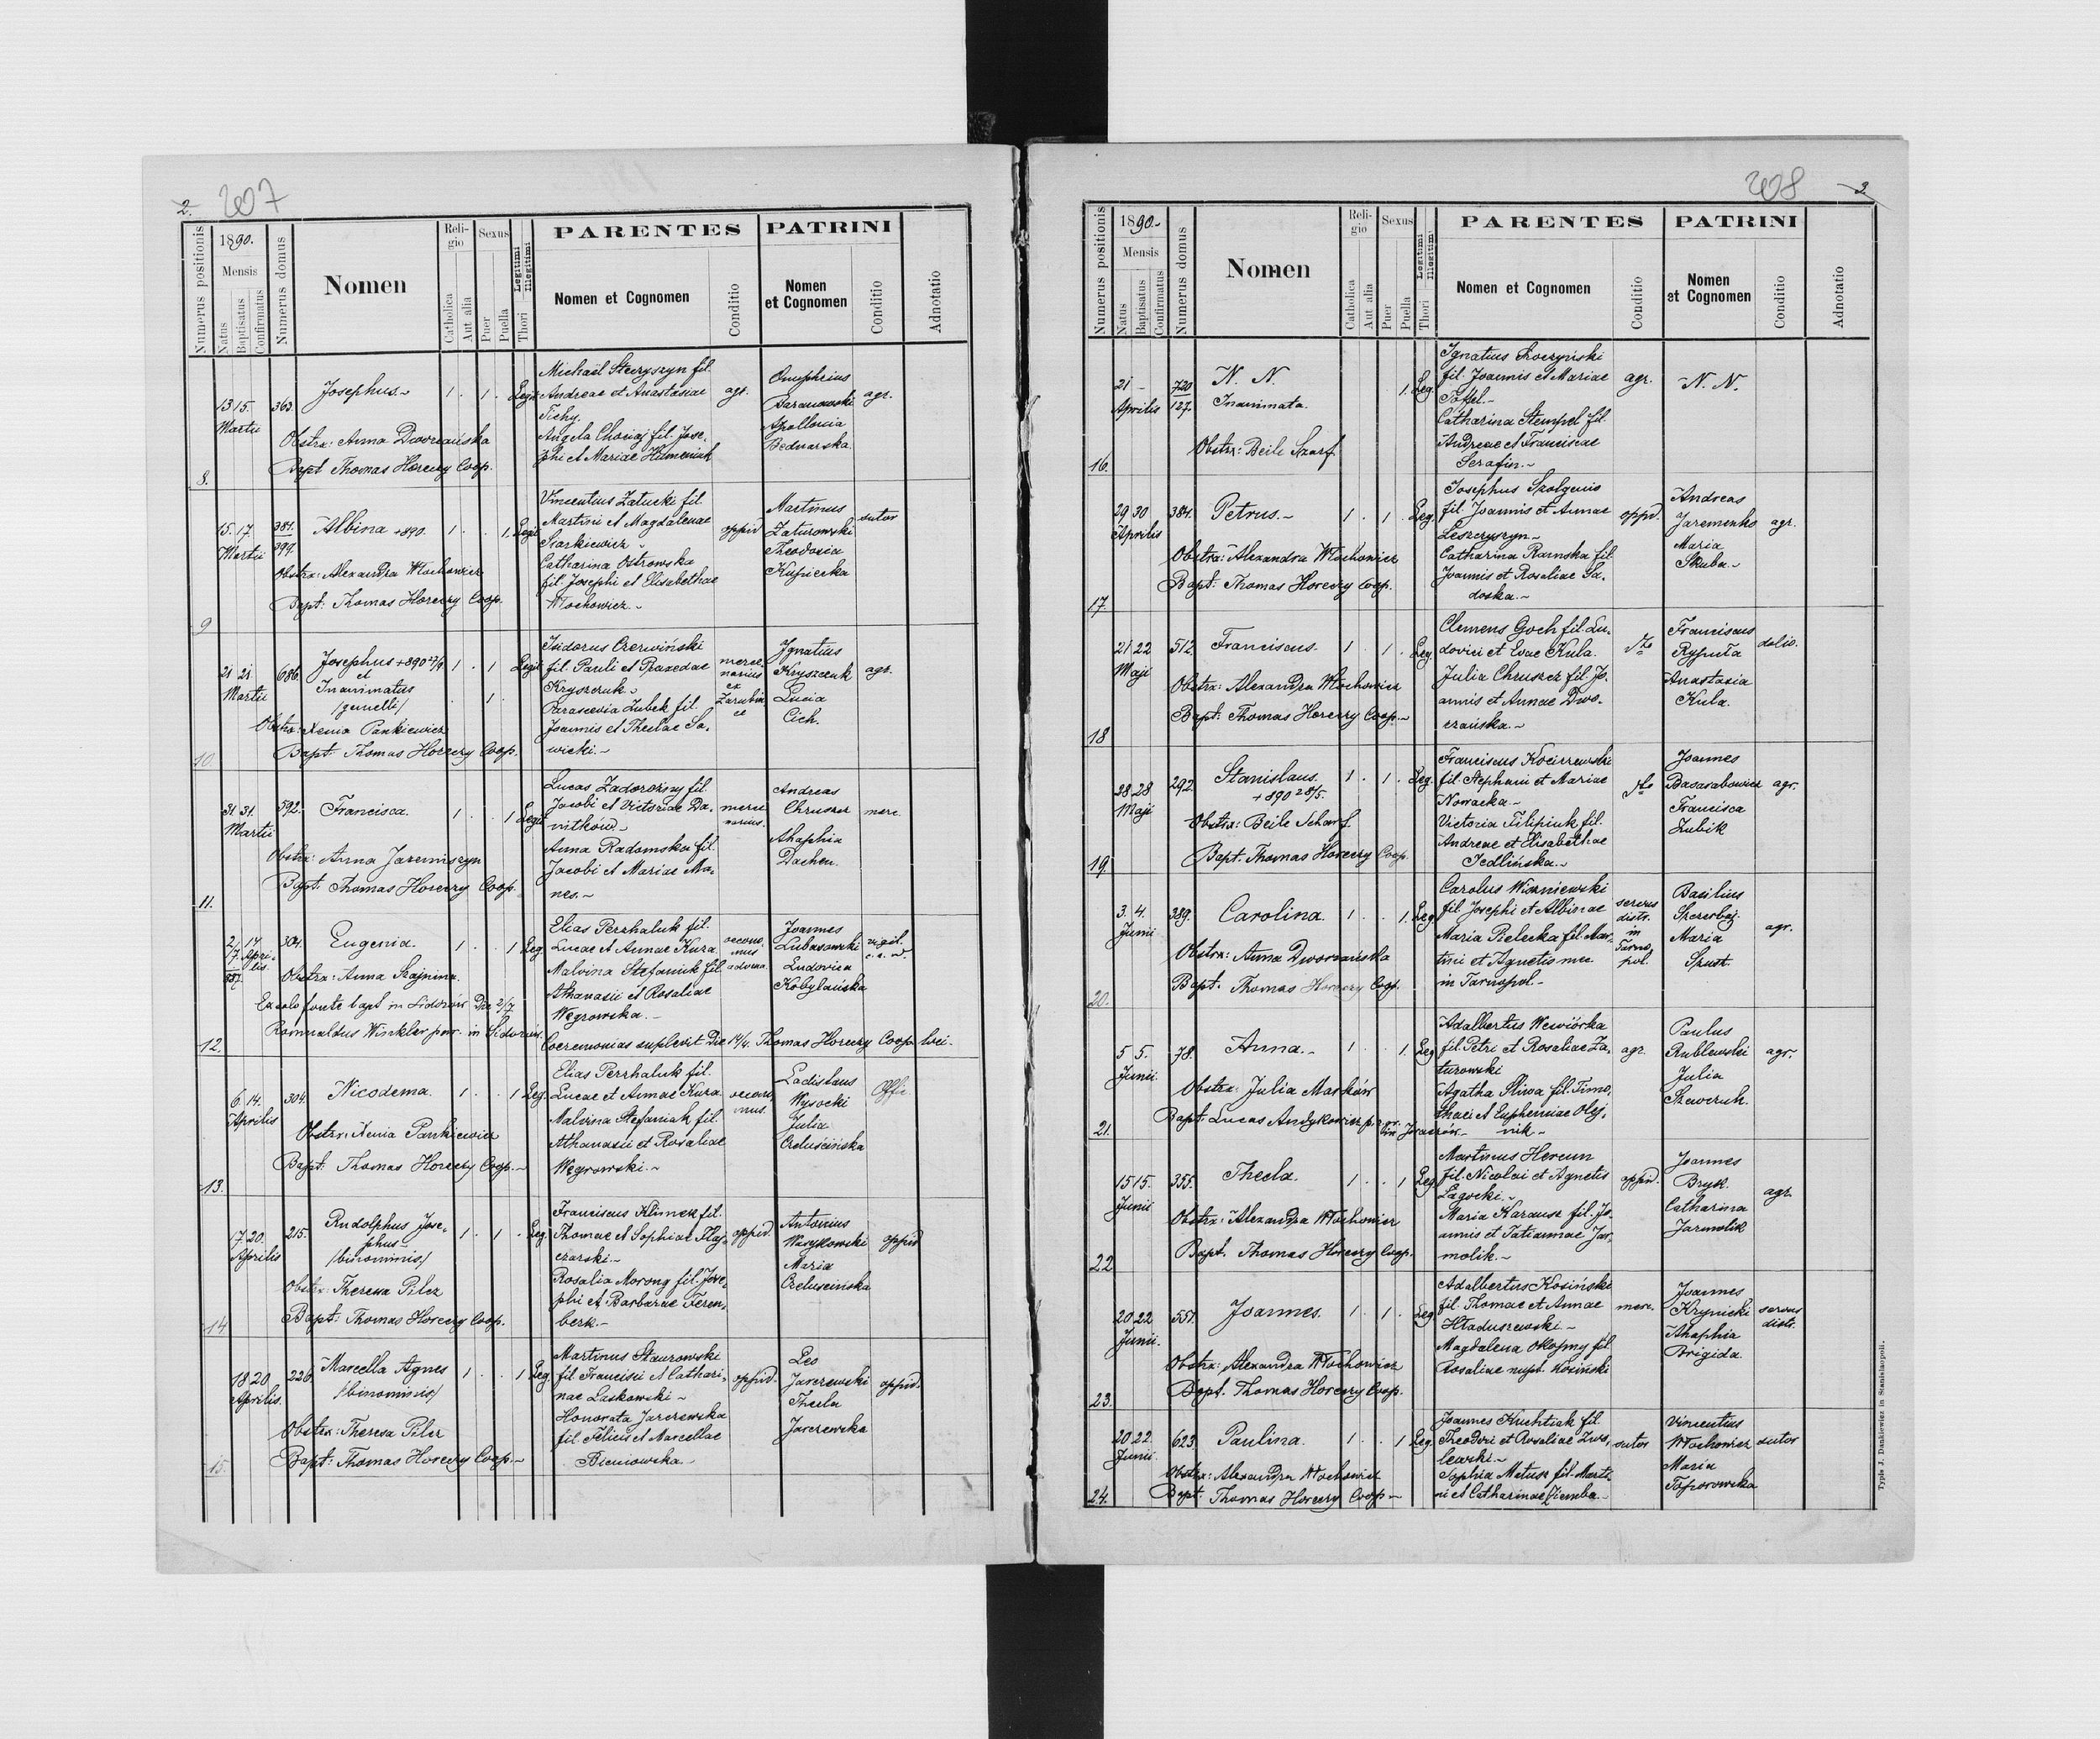 2. 207
Numerus positionis
1890.
Mensis
Natus
Baptisatus
Confirmatus
Numerus domus
Nomen
Religio
Catholica
Aut alia
Sexus
Puer
Puella
Legitimi
Illegitimi
Thori
PARENTES
Nomen et Cognomen
Conditio
PATRINI
Nomen
et Cognomen
Conditio
Adnotatio
8.
13 15.
Martii
363.
Josephus
1 . 1 . Legit.
Obstrx: Anna Dworzańska
Bapt Thomas Horeczy Coop.
fil.
Andreae et Anastasiae
Tichy.
Angela fil. Jose-
phi et Mariae Humeniuk
agr.
Baranowski
Apollonia
Bednarska
agr.
9
15. 17.
Martii
381.
399.
Albina +890.
1 . . 1. Legit.
Obstrx: Alexandra Włochowicz
Bapt: Thomas Horeczy Coop.
Vincentius Załucki fil
Martini et Magdalenae
Siarkiewicz
Catharina Ostrowska
fil. Josephi et Elisabethae
Włochowicz
oppid
Martinus
Zaturowski
Theodosia
Kupiecka
sutor
10
21 21
Martii
686.
Josephus +890 27/9
et
Inanimatus
/gemelli/
1 . 1 Legit.
. 1 .
Obstrx: Xenia Pankiewicz
Bapt: Thomas Horeczy Coop.
Isidorus Czerwiński
fil. Pauli et Praxedae
Kryszczuk
Parascevia Zubek fil.
Joannis et Theclae Sa-
wicki
merce-
narius
ex
Ignatius
Kryszczuk
Lucia
Cich.
agr.
11.
31 31.
Martii
592.
Francisca.
1 . . 1 Legit
Obstrx: Anna Jaremiszyn
Bapt: Thomas Horeczy Coop.
Lucas Zadorożny fil.
Jacobi et Victoriae Da-
nitkow
Anna Radomska fil.
Jacobi et Mariae Ma-
nes.
merce
narius.
Andreas
Chruszcz
Ahaphia
merc.
12.
17
Apri-
lis.
304.
Eugenia.
1 . . 1 Leg.
Obstrx: Anna Szajnina.
Ex solo fonte bapt in Sidorów Die 2/7
Romualdus Winkler par. in Sidorów.
Coeremonias suplevit Die 14/4. Thomas Horeczy Coop. loci.
Elias Perzhaluk fil.
Lucae et Annae Kuza
Malvina Stefaniuk fil.
Athanasii et Rosaliae
Węgrowska.
oecono-
mus
Joannes
Lubasowski
Ludovica
Kobylańska
vigil.
13.
6. 14.
Aprilis
304.
Nicodema.
1 . . 1 Leg.
Obstrx: Xenia Pankiewicz
Bapt: Thomas Horeczy Coop.
Elias Perzhaluk fil.
Lucae et Annae Kuza
Malvina Stefaniuk fil.
Athanasii et Rosaliae
Węgrowski.
oecono-
mus.
Ladislaus
Wysocki
Julia
Czeluscińska
Offic.
14
17 20.
Aprilis
215.
Rudolphus Jose-
phus
/binominis/
1 . 1 . Leg.
Obstrx: Theresa Pilcz
Bapt: Thomas Horeczy Coop.
Franciscus Klimek fil.
Thomae et Sophiae Flaj-
czarski.
Rosalia Morong fil. Jose-
phi et Barbarae Feren-
berk.
oppid.
Antonius
Wasylkowski
Maria
Czeluscińska
oppid
15.
18 20
Aprilis.
226.
Marcella Agnes
/binominis/
1 . . 1 Leg.
Obstrx: Theresa Pilcz
Bapt: Thomas Horeczy Coop.
Martinus Staurowski
fil Francisci et Cathari-
nae Laskowski
Honorata Jarczewska
fil. Felicis et Marcellae
Bieniowska
oppid.
Leo
Jarczewski
Thecla
Jarczewska
oppid.
208 3.
Numerus positionis
1890.
Mensis
Natus
Baptisatus
Confirmatus
Numerus domus
Nomen
Religio
Catholica
Aut alia
Sexus
Puer
Puella
Legitimi
Illegitimi
Thori
PARENTES
Nomen et Cognomen
Conditio
PATRINI
Nomen
et Cognomen
Conditio
Adnotatio
16.
21 -
Aprilis
720
127.
N. N.
Inanimata.
1. Leg.
Obstrx: Beile Szarf
Ignatius
fil. Joannis et Mariae
Catharina Stempel fil.
Andreae et Franciscae
Serafin.
agr.
N. N.
17.
29 30
Aprilis
384.
Petrus.
1 . 1 . Leg.
Obstrx: Alexandra Włochowicz
Bapt: Thomas Horeczy Coop.
Josephus
fil. Joannis et Annae
Leszczyszyn
Catharina Ramska fil
Joannis et Rosaliae Sa-
doska.
oppid.
Andreas
Jaremenko
Maria
Skuba
agr.
18
21 22
Maji
512.
Franciscus.
1 . 1 . Leg.
Obstrx: Alexandra Włochowicz
Bapt: Thomas Horeczy Coop.
Clemens Goch fil. Lu-
dovici et Evae Kula.
Julia Chruszcz fil. Jo-
annis et Annae Dwo-
rzańska.
dto
Franciscus
Anastasia
Kula.
19.
28 28
Maji
292.
Stanislaus.
+890 28/5.
1 . 1 . Leg.
Obstrx: Beile Scharf.
Bapt. Thomas Horeczy Coop.
Franciscus
fil. Stephani et Mariae
Nowacka
Victoria Filipiuk fil.
Andreae et Elisabethae
Jedlińska.
dto
Joannes
Basarabowicz
Francisca
Zubik
agr.
20.
3. 4.
Junii
389.
Carolina.
1 . . 1. Leg
Obstrx: Anna Dworzańska
Bapt. Thomas Horeczy Coop.
Carolus Wiszniewski
fil Josephi et Albinae
Maria Pielecka fil. Mar-
tini et Agnetis nee
in Tarnopol
servus
distr.
in
Tarno-
pol.
Basilius
Szczerbaj
Maria
Szust.
agr.
21.
5 5.
Junii
78.
Anna.
1 . . 1. Leg
Obstrx: Julia Marków
Bapt: Lucas Andykowicz
Adalbertus Wewiórka
fil. Petri et Rosaliae Za-
turowski
Agatha Sliwa fil. Timo-
thaei et Eupheniae Olej-
nik
agr.
Paulus
Rublewski
Julia
Szewczuk.
agr.
22
15 15.
Junii
355.
Thecla.
1 . . 1 Leg
Obstrx: Alexandra Włochowicz
Bapt. Thomas Horeczy Coop.
Martinus Hercun
fil. Nicolai et Agnetis
Łagocki.
Maria Karausz fil. Jo-
annis et Tatiannae Jar-
molik.
oppid.
Joannes
Bryk.
Catharina
Jarmolik
agr.
23.
20 22
Junii.
557.
Joannes.
1 . 1 . Leg
Obstrx: Alexandra Włochowicz
Bapt. Thomas Horeczy Coop.
Adalbertus Kosiński
fil. Thomae et Annae
Hładuszewski
Magdalena Okopny fil.
Rosaliae nupt. Kosiński
merc.
Joannes
Krynicki
Ahaphia
Brigida.
servus
distr.
24.
20 22.
Junii
623.
Paulina.
1 . . 1 Leg.
Obstrx: Alexandra Włochowicz
Bapt. Thomas Horeczy Coop.
Joannes Kuchtiak fil.
Theodori et Rosaliae Zwo-
lewski
Sophia Matusz fil. Marti-
ni et Catharinae Ziemba.
sutor
Vincentius
Włochowicz
Maria
Toporowska
sutor
Typis J. Dankiewicz in Stanislaopoli.